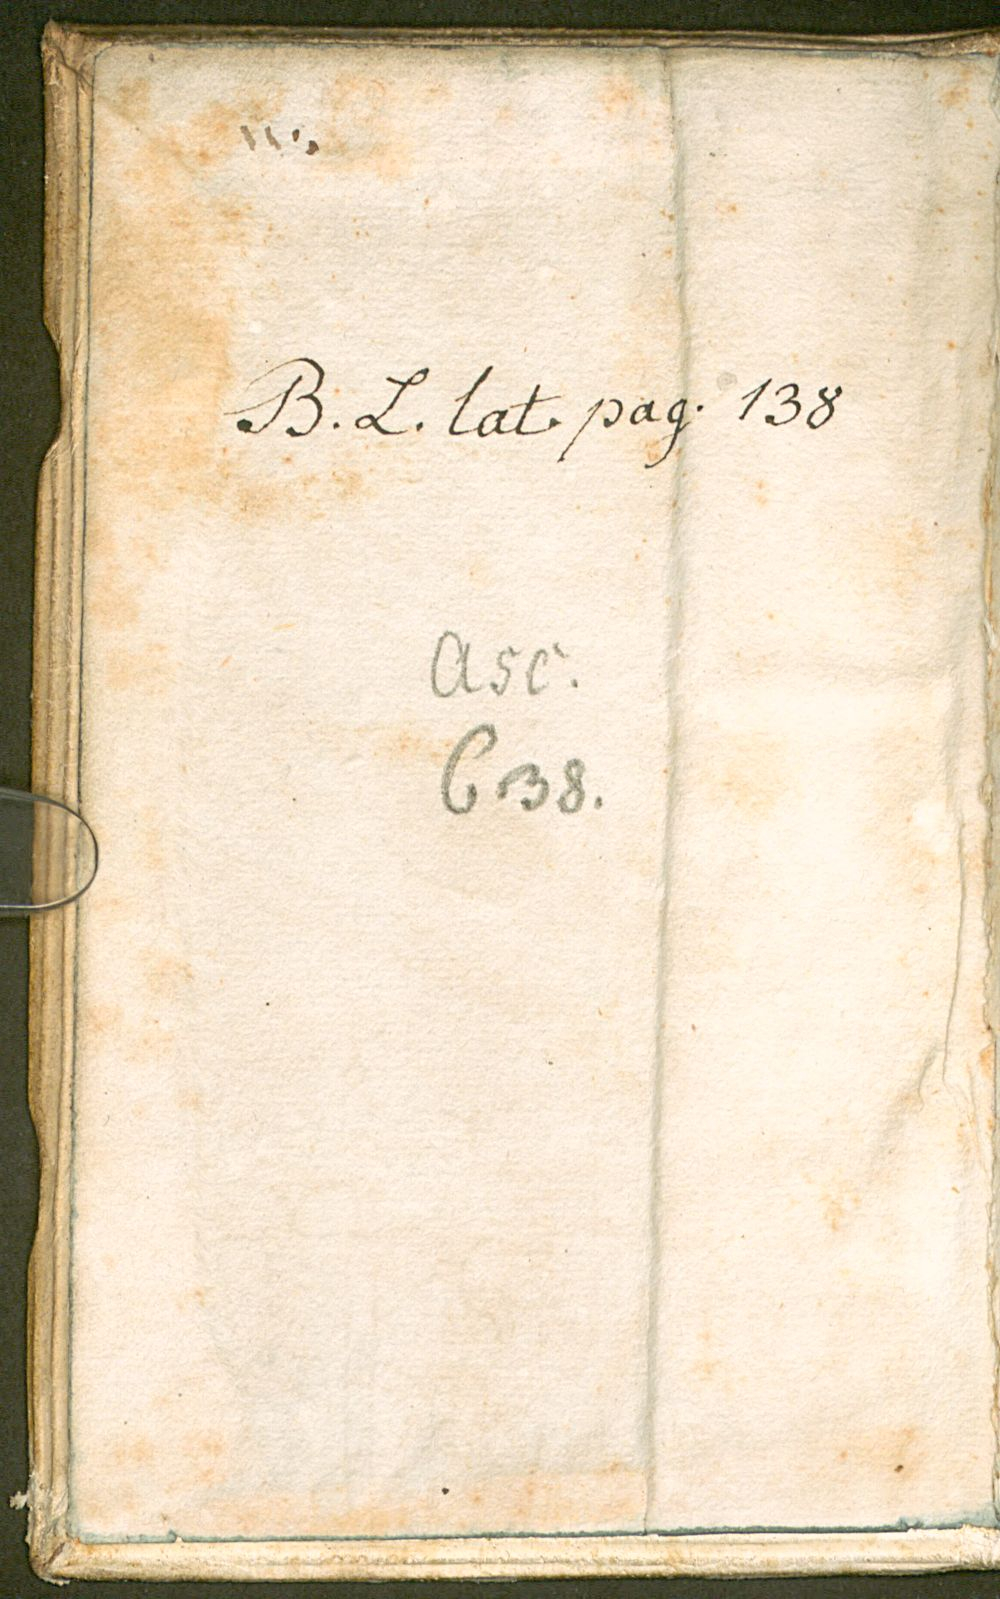 B. L. lat. pag. 138
Asc.
C 38.